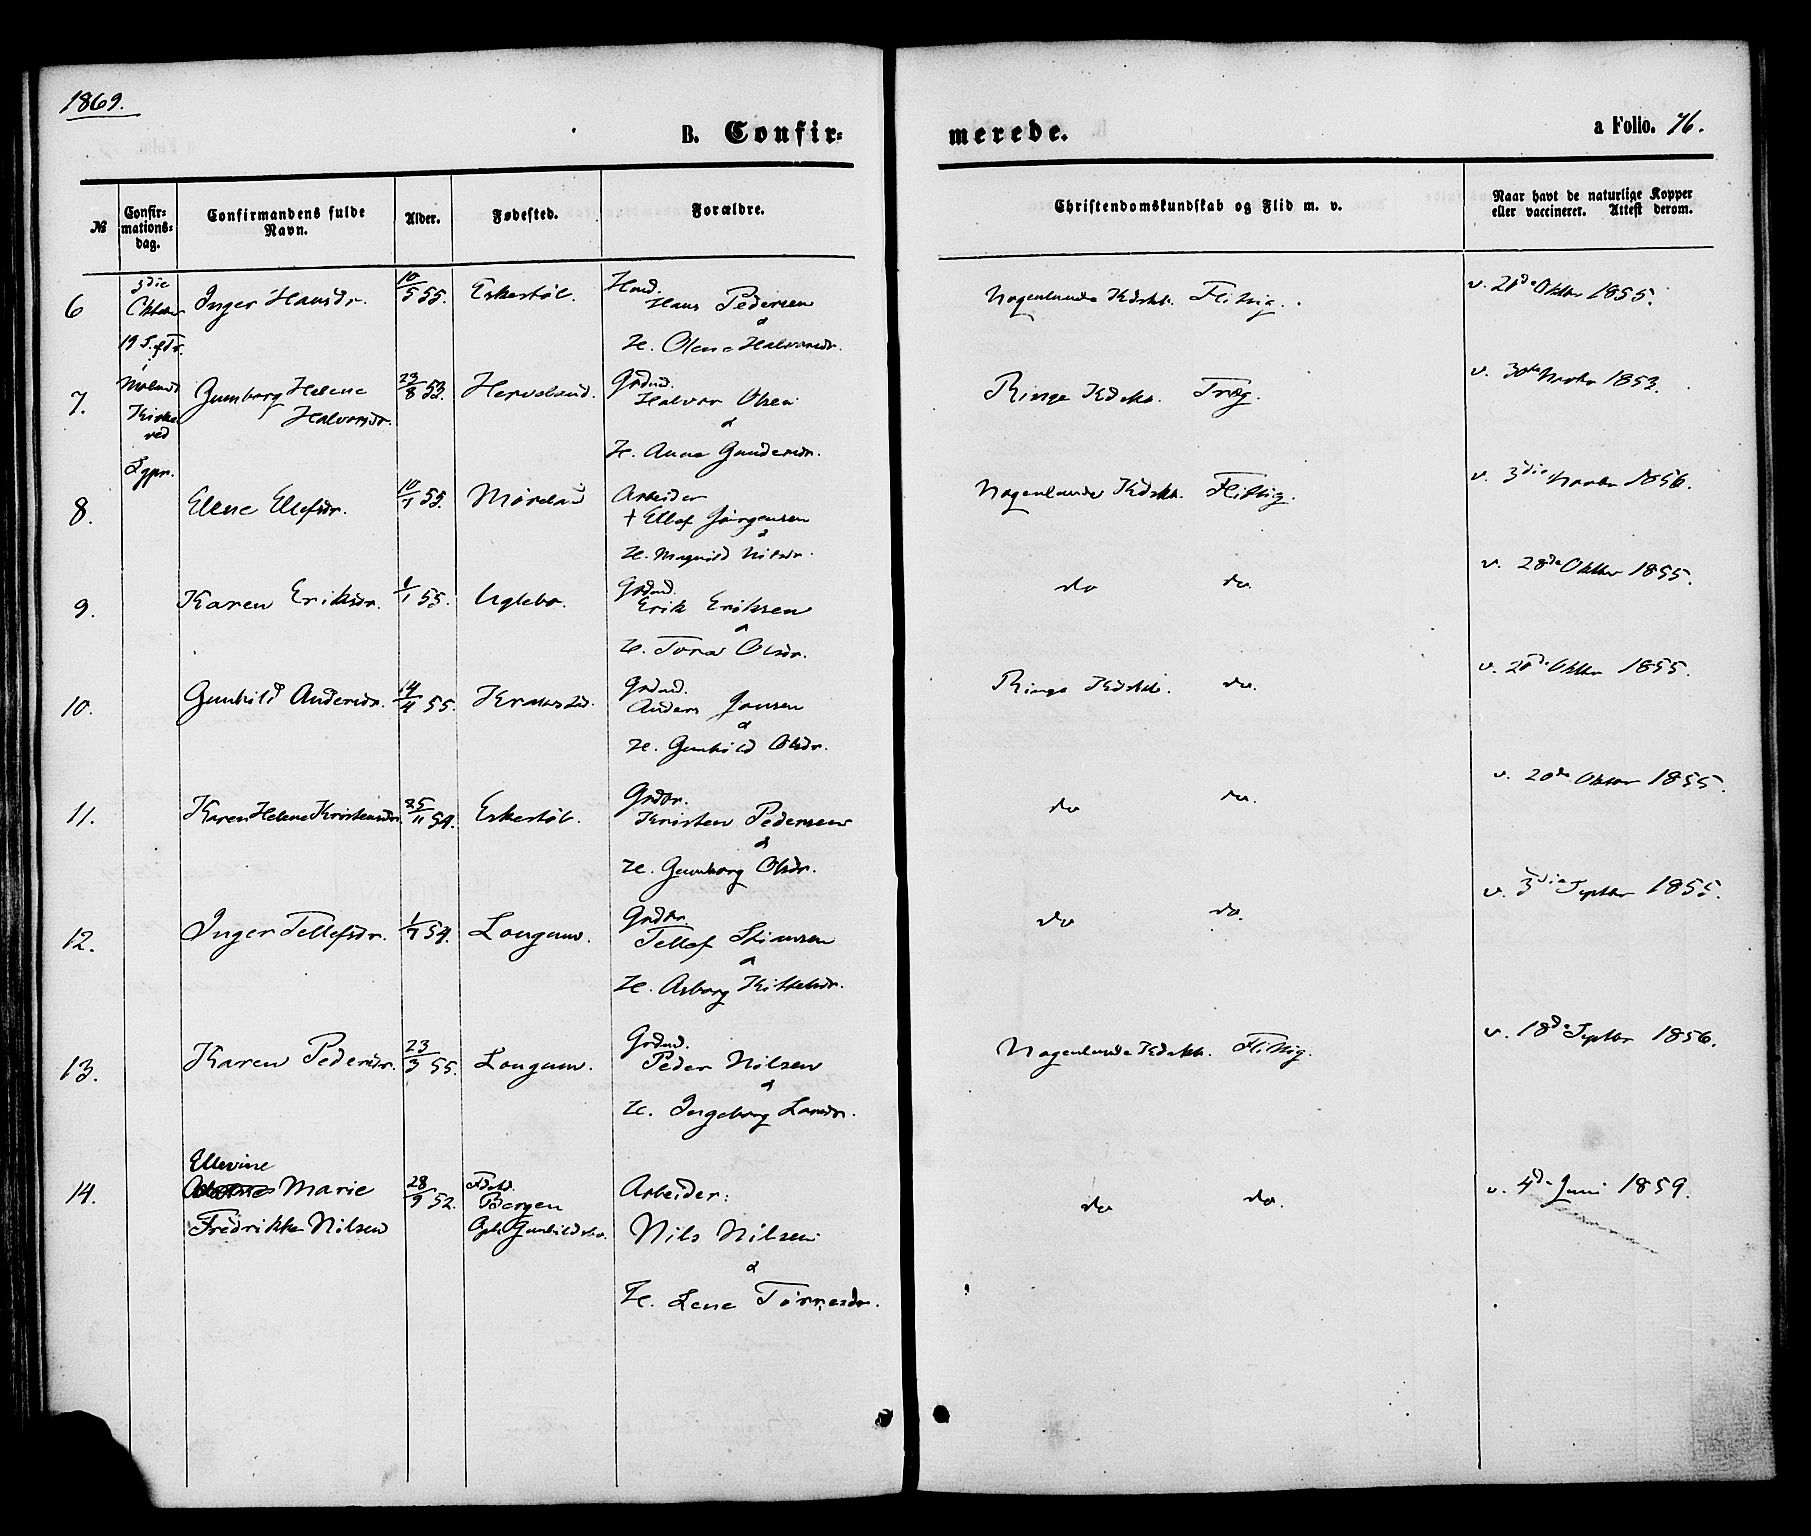 1869.
B. Confirmerede.
a Folio. 76.
№
Confirmationsdag.
Confirmandens fulde Navn.
Alder.
Fødested.
Forældre.
Christendomskundskab og Flid m. v.
Naar havt de naturlige Kopper
eller vaccineret. Attest derom.
3die
Oktober
19 S. e. Tr.
i
Kirke
ved
Sgpr.
6 Inger Hansdr. 10/5 55. Eskestøl.
Hans Pedersen
&
H. Olene Halvorsdr.
Nogenlunde Kdskb. Flittig. v. 20de Oktbr 1855.
7. Gunborg Helene
Halvorsdr.
23/8 53.
Grdmd.
Halvor Olsen
&
H. Anne Gundersdr.
Ringe Kdskb. Træg. v. 30te Novbr 1853.
8. Elene Ellefsdr. 10/1 55. Møreland
Arbeider
+ Ellef Jørgensen
&
H. Magnild Nilsdr.
Nogenlunde Kdskb. Flittig. v. 3die Novbr 1856.
9. Karen Eriksdr. 1/1 55. Uglebo.
Grdmd.
Erik Eriksen
&
H. Tora Olsdr.
do do. v. 28de Oktbr 1855.
10. Gunhild Andersdr. 14/4 55.
Grdmd.
Anders Jensen
&
H. Gunhild Olsdr.
Ringe Kdskb. do. v. 20de Oktbr 1855.
11. Karen Helene Kristensdr. 25/11 54. Eskestøl.
Grdbr.
Kristen Pedersen
&
H. Gunborg Olsdr.
do do. v. 20de Oktbr 1855.
12. Inger Tellefsdr. 1/7 54. Longum.
Grdbr.
Tellef Stiansen
&
H. Asborg Kittelsdr.
do do. v. 3die Septbr 1855.
13. Karen Pedersdr. 23/3 55. Longum.
Grdmd.
Peder Nilsen
&
H. Ingeborg Larsdr.
Nogenlunde Kdskb. Flittig. v. 18de Septbr 1856.
Ellevine
14. Marie
Fredrikke Nilsen
28/9 52.
Bergen
Oph. Gunhildsbo.
Arbeider:
Nils Nilsen
&
H. Lene Tørresdr.
do do. v. 4de Juni 1859.